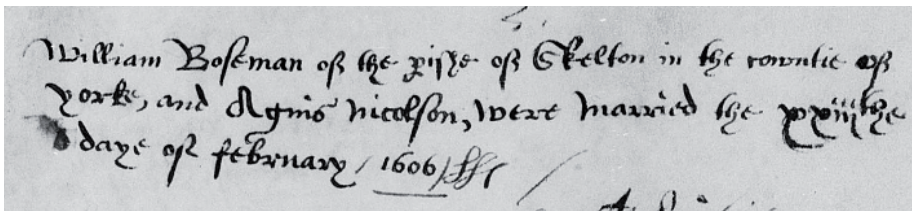 William Boseman of the pishe of Skelton in the countie of
Yorke, and Agnis Nicolson, were married the xxiiithe
daye of february / 1606 /